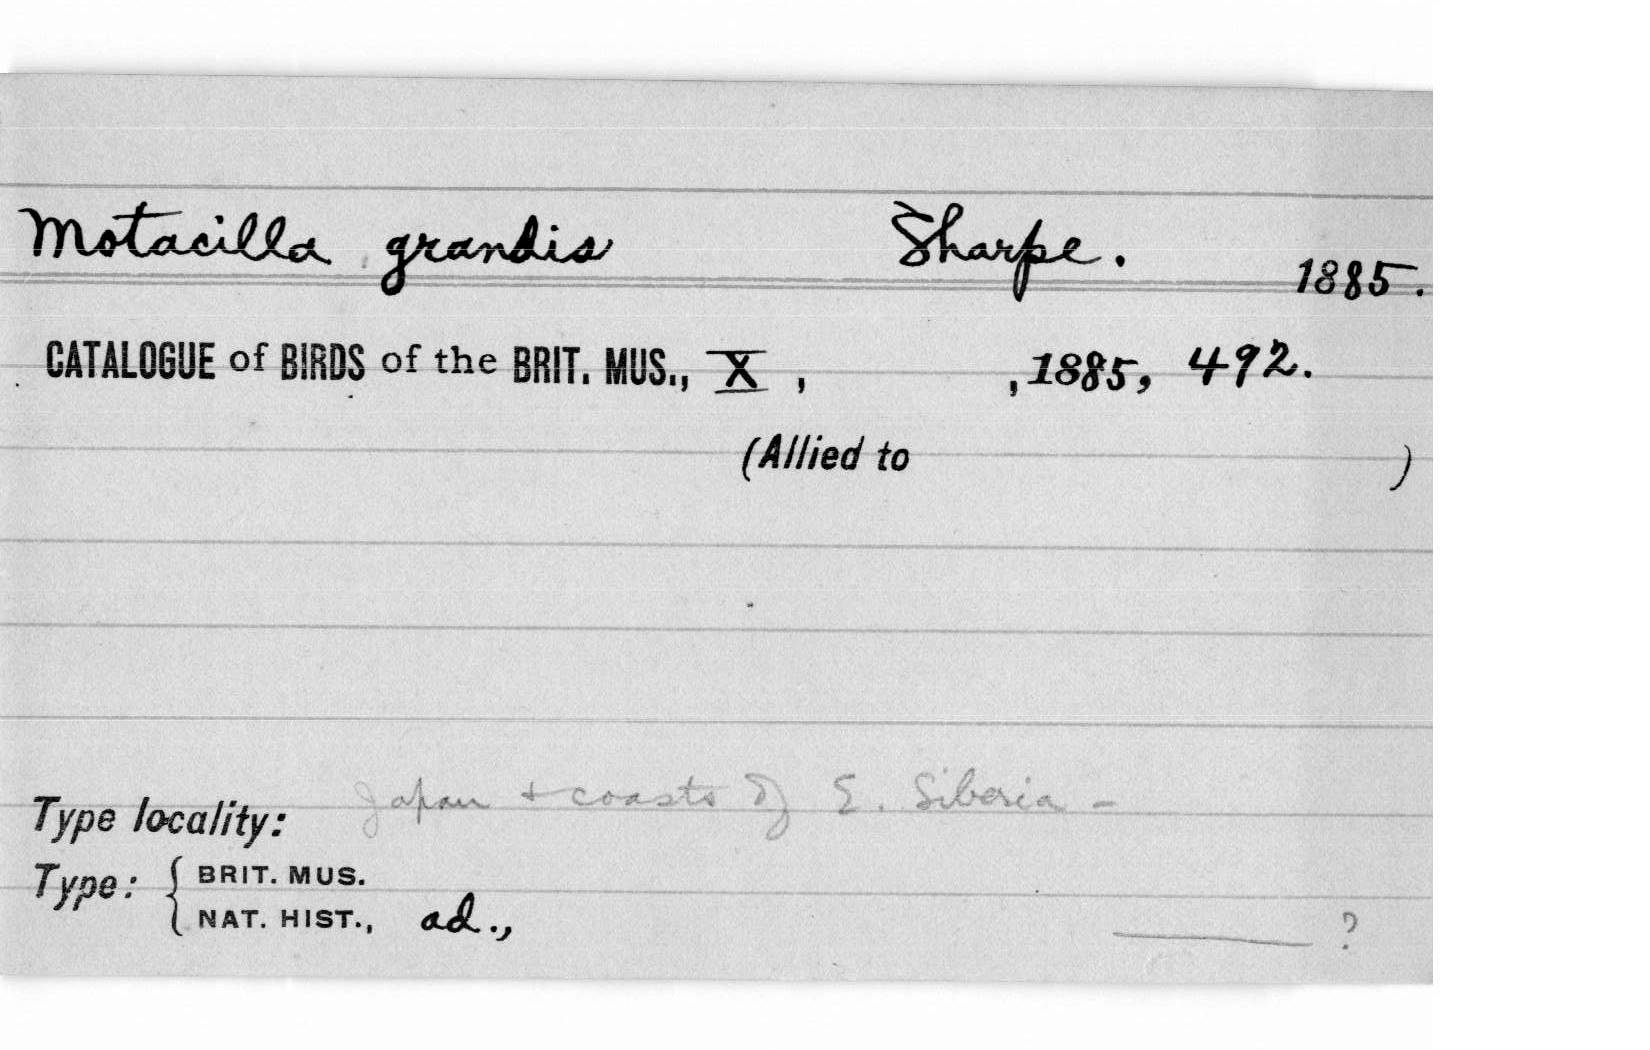 Motacilla grandis Sharpe. 1885.
CATALOGUE of BIRDS of the BRIT. MUS., X , , 1885, 492.
(Allied to )
Type locality: Japan + coasts of E. Siberia –
Type: { BRIT. MUS.
NAT. HIST., ad., ——— ?